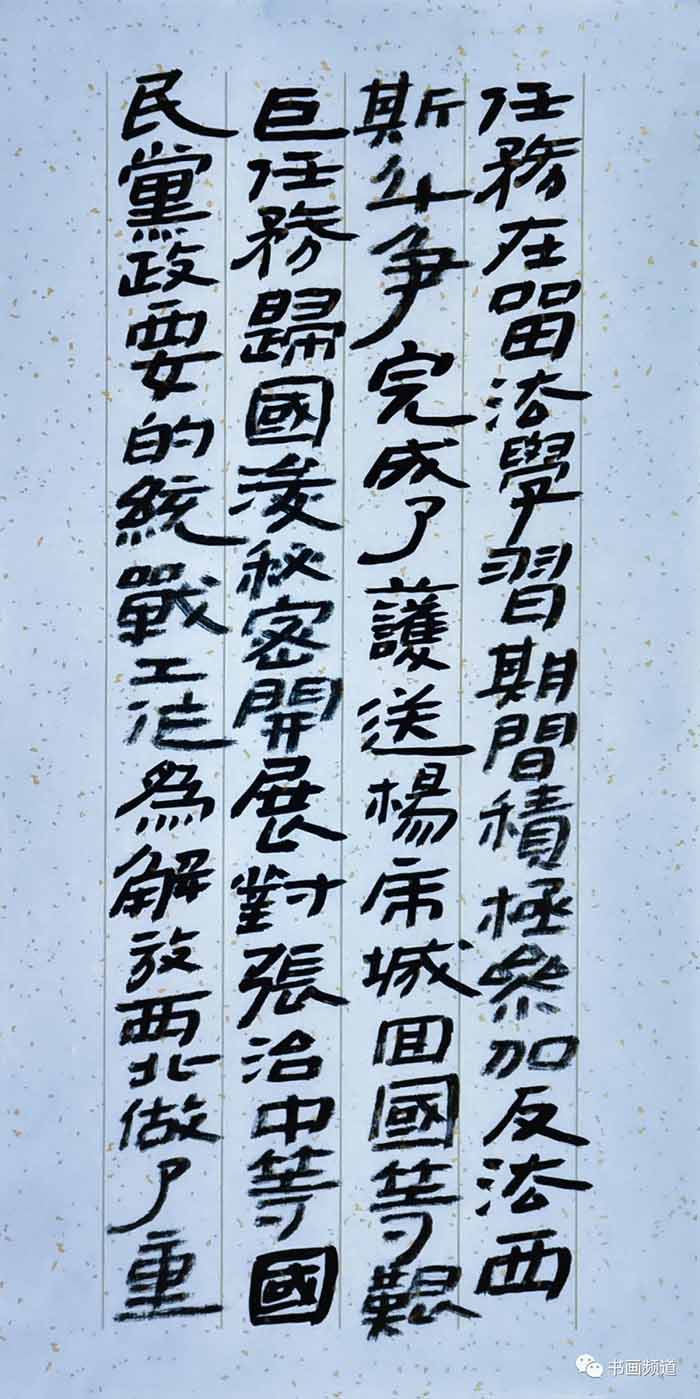 任務在留法學習期間積極參加反法西
斯斗争完成了護送楊虎城回國等艱
巨任務歸國後秘密開展對張治中等國
民黨政要的統戰工作為解放西北做了重
书画频道